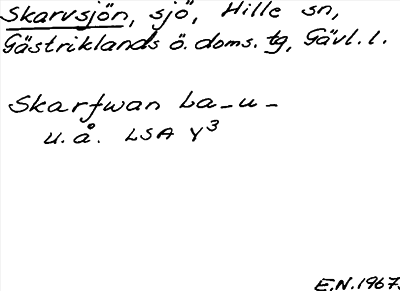 Skarvsjön, sjö, Hille sn,
Gästriklands ö. doms. tg, Gävl. l.
Skarfwan La-u-
u. å. LSA Y3
E.N. 1967.